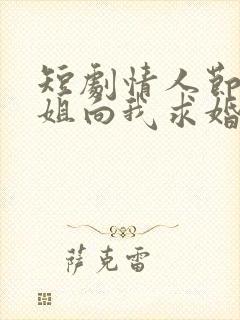 短劇情人節
姐向我求婚
萨克雷